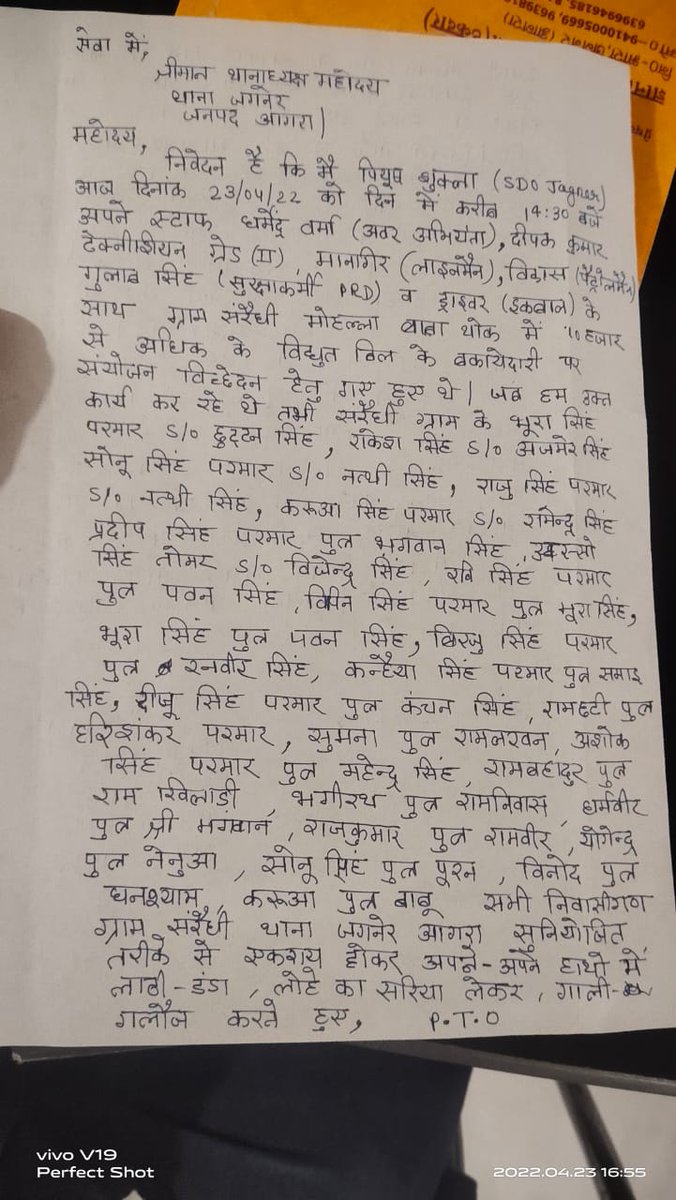 639694618
मो०-9410005669, 963981
सेवा में,
श्रीमान थानाध्यक्ष महोदय
थाना जगनेर
जनपद आगरा|
महोदय,
निवेदन है कि मै पियूष शुक्ला (SDO Jagner)
आज दिनांक 23/04/22 को दिन में करीब 14:30 बजे
अपने स्टाफ धर्मेंद्र वर्मा (अवर अभियंता), दीपक कुमार
टेक्नीशियन ग्रेड (II), मानागिर (लाइनमैन), विकास (पैट्रोलमैन)
गुलाब सिंह (सुरक्षाकर्मी PRD) व ड्राइवर (इकबाल) के
साथ ग्राम संरैधी मोहल्ला बाबा थोक में 10 हजार
से अधिक के विद्युत बिल के बकायेदारी पर
संयोजन विच्छेदन हेतु गए हुए थे| जब हम उक्त
कार्य कर रहे थे तभी संरैधी ग्राम के भूरा सिंह
परमार S/o छुट्टन सिंह, राकेश सिंह S/o अजमेर सिंह
सोनू सिंह परमार S/o नत्थी सिंह, राजु सिंह परमार
S/o नत्थी सिंह, करूआ सिंह परमार S/o रामेन्द्र सिंह
प्रदीप सिंह परमार पुत्र भगवान सिंह,
सिंह तोमर S/o विजेन्द्र सिंह, रवि सिंह परमार
पुत्र पवन सिंह, विपिन सिंह परमार पुत्र भूरा सिंह,
भूरा सिंह पुत्र पवन सिंह, विरजु सिंह परमार
पुत्र रनवीर सिंह, कन्हैया सिंह परमार पुत्र समाइ
सिंह, दीजू सिंह परमार पुत्र कंचन सिंह, रामहटी पुत्र
हरिशंकर परमार, सुमना पुत्र रामलखन, अशोक
सिंह परमार पुत्र महेन्द्र सिंह, रामबहादुर पुत्र
राम खिलाडी, भगीरथ पुत्र रामनिवास, धर्मवीर
पुत्र श्री भगवान, राजकुमार पुत्र रामवीर, योगेन्द्र
पुत्र नेनुआ, सोनू सिंह पुत्र पूरन, विनोद पुत्र
घनश्याम, करूआ पुत्र बाबू सभी निवासीगण
ग्राम संरैधी थाना जगनेर आगरा सुनियोजित
तरीके से एकराय होकर अपने-अपने हाथो में
लाठी-डंडा, लोहे का सरिया लेकर, गाली-
गलौज करते हुए, P.T.O
vivo V19
Perfect Shot
2022.04.23 16:55